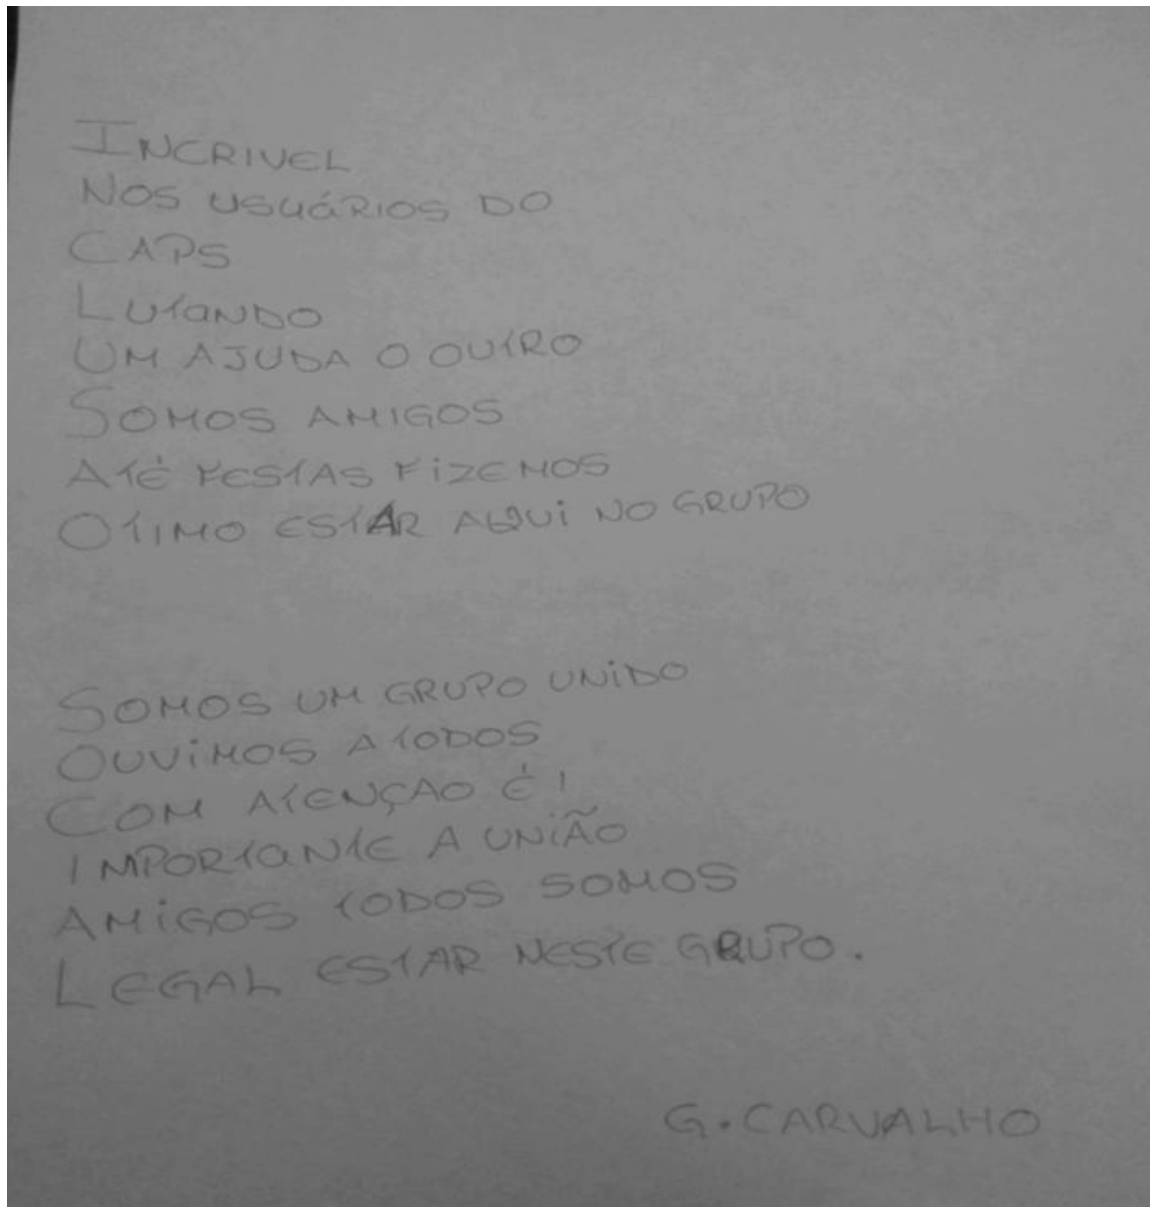 INCRIVEL
NOS USUÁRIOS DO
CAPS
LUTANDO
UM AJUDA O OUTRO
SOMOS AMIGOS
ATÉ FESTAS FIZEMOS
OTIMO ESTAR AQUI NO GRUPO
SOMOS UM GRUPO UNIDO
OUVIMOS A TODOS
COM ATENÇAO É!
IMPORTANTE A UNIÃO
AMIGOS TODOS SOMOS
LEGAL ESTAR NESTE GRUPO.
G. CARVALHO